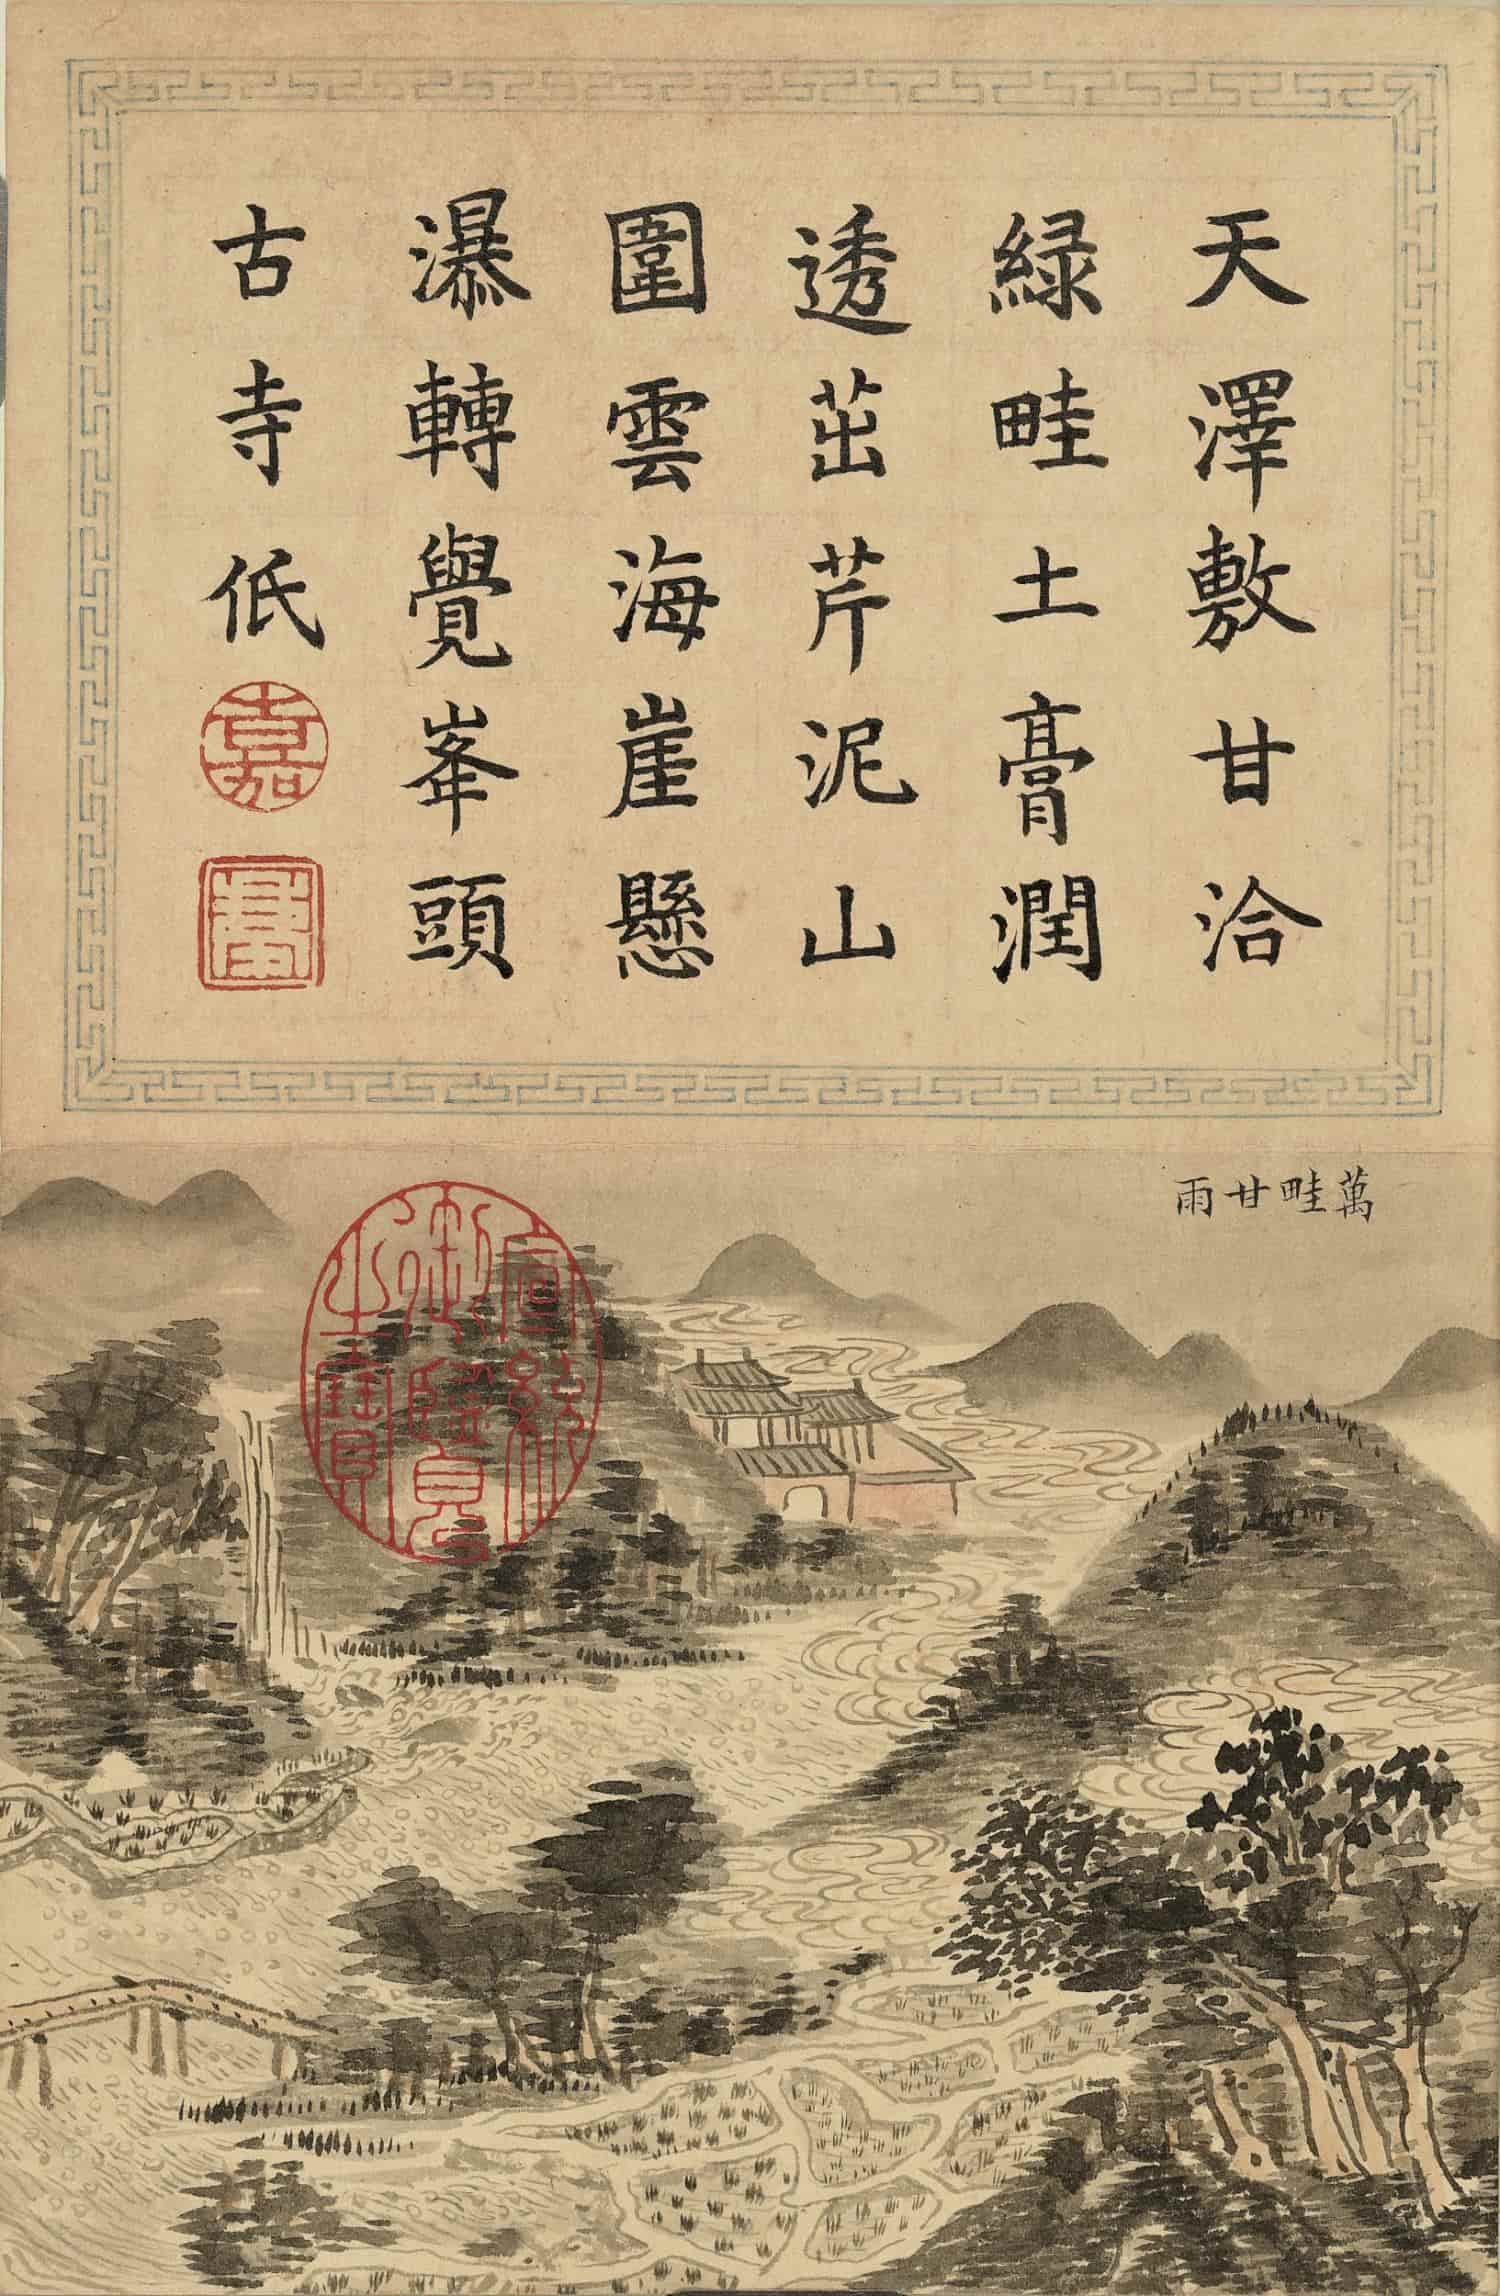 天澤敷甘洽
緑畦土膏潤
透茁芹泥山
圍雲海崖懸
瀑轉覺峯頭
古寺低
嘉
慶
萬畦甘雨
宣統
御覽
之寶